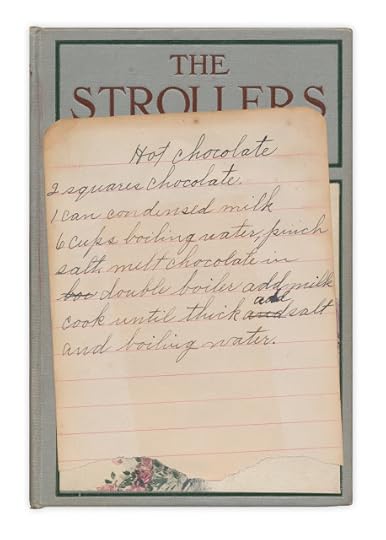 THE
STROLLERS
Hot chocolate
2 squares chocolate.
1 can condensed milk
6 cups boiling water, pinch
salt, melt chocolate in
boi double boiler add milk
cook until thick and add salt
and boiling water.